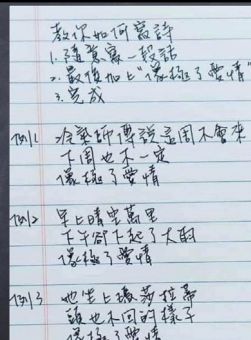 教你如何寫詩
1. 隨意寫一段話
2. 最後加上"像極了愛情"
3. 完成
例1 冷氣師傅說這周不會來
下周也不一定
像極了愛情
例2 早上晴空萬里
下午卻下起了大雨
像極了愛情
例3 她坐上捷莎拉蒂
頭也不回的樣子
像極了愛情